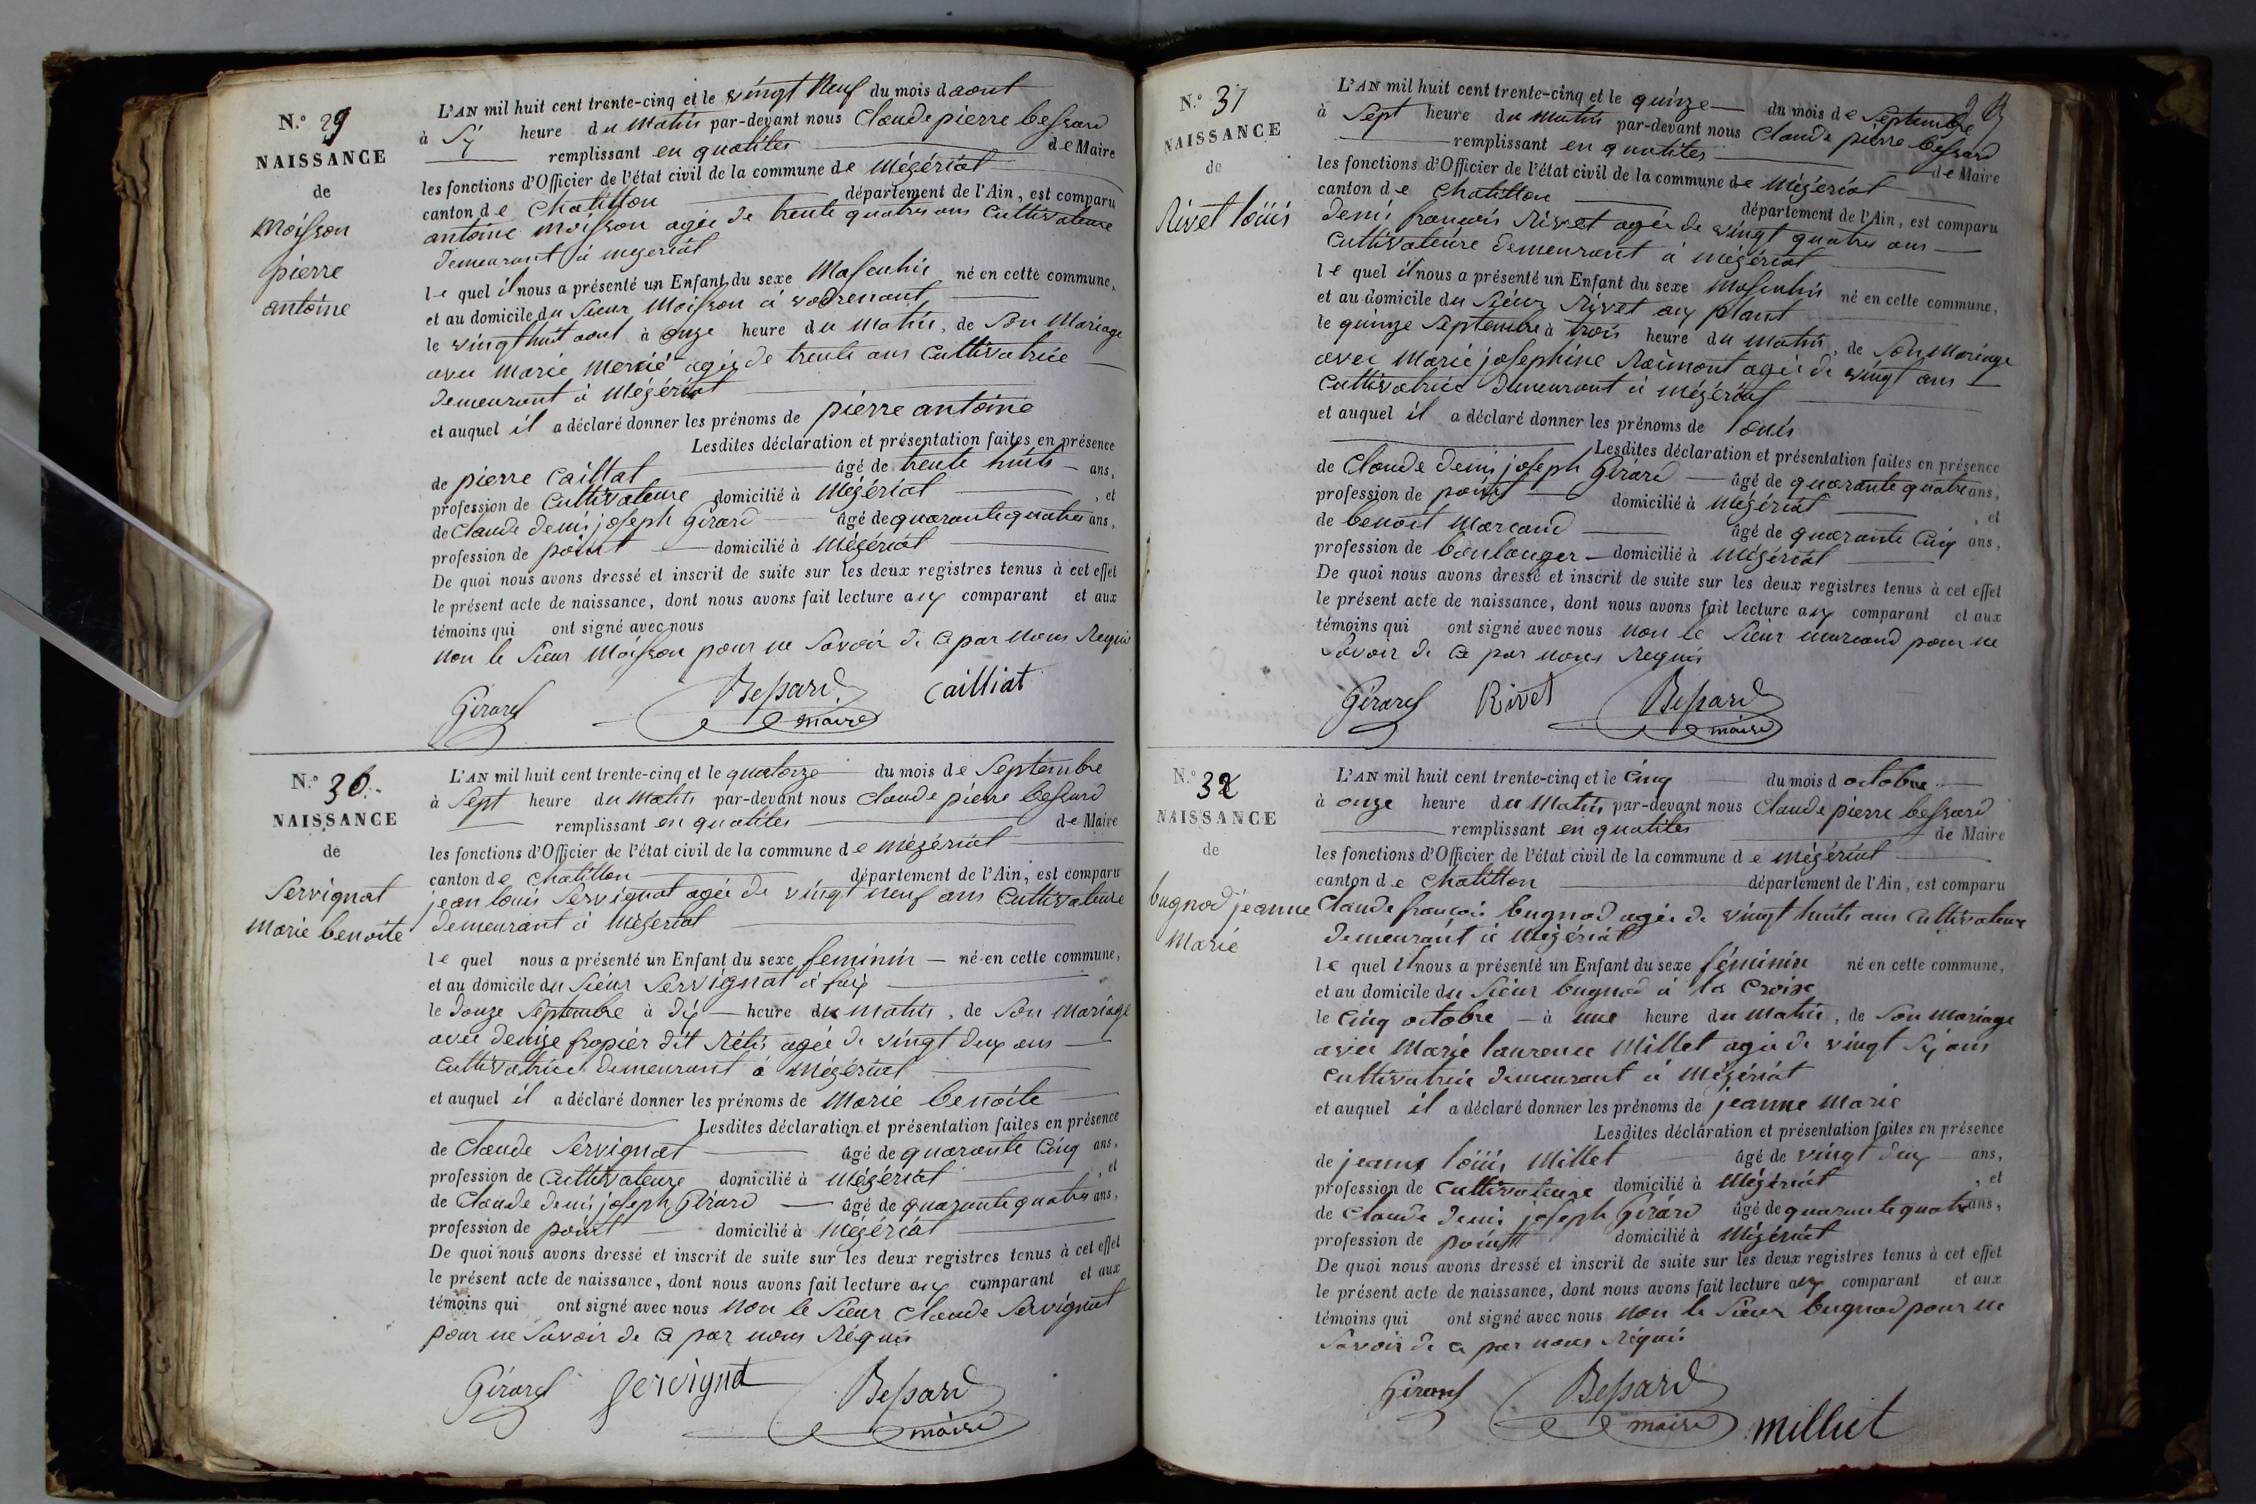 N.° 29
NAISSANCE
de
Moisson
pierre
antoine
L'AN mil huit cent trente-cinq et le vingt Neuf du mois d aout
à Six heure du Matin par-devant nous Claude pierre bessard
remplissant en qualités de Maire
les fonctions d'Officier de l'état civil de la commune de Mézériat
canton de Chatillon département de l'Ain, est comparu
antoine Moisson agée de trente quatres ans Cultivateure
demeurant à mezeriat
le quel il nous a présenté un Enfant du sexe Masculin né en cette commune,
et au domicile du Sieur Moisson à
le vingt huit aout à onze heure du Matin, de Son Mariage
avec Marie agée de trente ans Cultivatrice
demeurant à Mézériat
et auquel il a déclaré donner les prénoms de pierre antoine
Lesdites déclaration et présentation faites en présence
de pierre Caillat âgé de trente huits ans,
profession de Cultivateure domicilié à Mézériat , et
de Claude denis joseph Girard âgé de quarante quatres ans,
profession de domicilié à Mézériat
De quoi nous avons dressé et inscrit de suite sur les deux registres tenus à cet effet
le présent acte de naissance, dont nous avons fait lecture aux comparant et aux
témoins qui ont signé avec nous
non le Sieur Moisson pour ne Savoir de ce par nous Requis
Girard Bessard maire Cailliat
N.° 30
NAISSANCE
de
Servignat
Marie benoite
L'AN mil huit cent trente-cinq et le quatorze du mois de Septembre
à Sept heure du Matin par-devant nous Claude pierre bessard
remplissant en qualités de Maire
les fonctions d'Officier de l'état civil de la commune de Mézériat
canton de Chatillon département de l'Ain, est comparu
jean louis Servignat agée de vingt neuf ans Cultivateure
demeurant à Mézériat
le quel nous a présenté un Enfant du sexe feminin né en cette commune,
et au domicile du Sieur Servignat à
le douze Septembre à dix heure du matin, de Son Mariage
avec denise dit agée de vingt dux ans
Cultivatrice demeurant à Mézériat
et auquel il a déclaré donner les prénoms de Marie benoite
Lesdites déclaration et présentation faites en présence
de Claude Servignat âgé de quarante Cinq ans,
profession de Cultivateure domicilié à Mézériat , et
de Claude denis joseph Girard âgé de quarante quatres ans,
profession de domicilié à Mézériat
De quoi nous avons dressé et inscrit de suite sur les deux registres tenus à cet effet
le présent acte de naissance, dont nous avons fait lecture aux comparant et aux
témoins qui ont signé avec nous Non le Sieur Claude Servignat
pour ne Savoir de ce par nous Réquis
Girard Servignat Bessard maire
N.° 31
NAISSANCE
de
Rivet loüis
L'AN mil huit cent trente-cinq et le quinze du mois de Septembre
à Sept heure du Matin par-devant nous Claude pierre bessard
remplissant en qualités de Maire
les fonctions d'Officier de l'état civil de la commune de Mézériat
canton de Chatillon département de l'Ain, est comparu
denis francois Rivet agée de vingt quatres ans
Cultivateure demeurant à Mézériat
le quel il nous a présenté un Enfant du sexe Masculin né en cette commune,
et au domicile du Sieur Rivet aux plant
le quinze Septembre à trois heure du Matin, de Son Mariage
avec Marie josephine Raimont agée de vingt ans
Cultivatrice demeurant à Mézériat
et auquel il a déclaré donner les prénoms de louis
Lesdites déclaration et présentation faites en présence
de Claude denis joseph Girard âgé de quarante quatre ans,
profession de domicilié à Mézériat , et
de benoit Marcand âgé de quarante Cinq ans,
profession de boulanger domicilié à Mézériat
De quoi nous avons dressé et inscrit de suite sur les deux registres tenus à cet effet
le présent acte de naissance, dont nous avons fait lecture aux comparant et aux
témoins qui ont signé avec nous non le Sieur marcand pour ne
Savoir de ce par nous Requis
Girard Rivet Bessard maire
N.° 32
NAISSANCE
de
bugnod jeanne
Marie
L'AN mil huit cent trente-cinq et le Cinq du mois d octobre
à onze heure du Matin par-devant nous Claude pierre bessard
remplissant en qualités de Maire
les fonctions d'Officier de l'état civil de la commune de Mézériat
canton de Chatillon département de l'Ain, est comparu
Claude francois bugnod agée de vingt huits ans Cultivateure
demeurant à Mézériat
le quel il nous a présenté un Enfant du sexe féminin né en cette commune,
et au domicile du Sieur bugnod à la Croix
le Cinq octobre à une heure du Matin, de Son mariage
avec Marie laurence Millet agée de vingt Six ans
Cultivatrice demeurant à Mézériat
et auquel il a déclaré donner les prénoms de jeanne Marie
Lesdites déclaration et présentation faites en présence
de loüis Millet âgé de vingt dux ans,
profession de Cultivateure domicilié à Mézériat , et
de Claude denis joseph Girard âgé de quarante quatre ans,
profession de domicilié à Mézériat
De quoi nous avons dressé et inscrit de suite sur les deux registres tenus à cet effet
le présent acte de naissance, dont nous avons fait lecture aux comparant et aux
témoins qui ont signé avec nous non le Sieur bugnod pour ne
Savoir de ce par nous Réquis
Girard Bessard maire Milliet